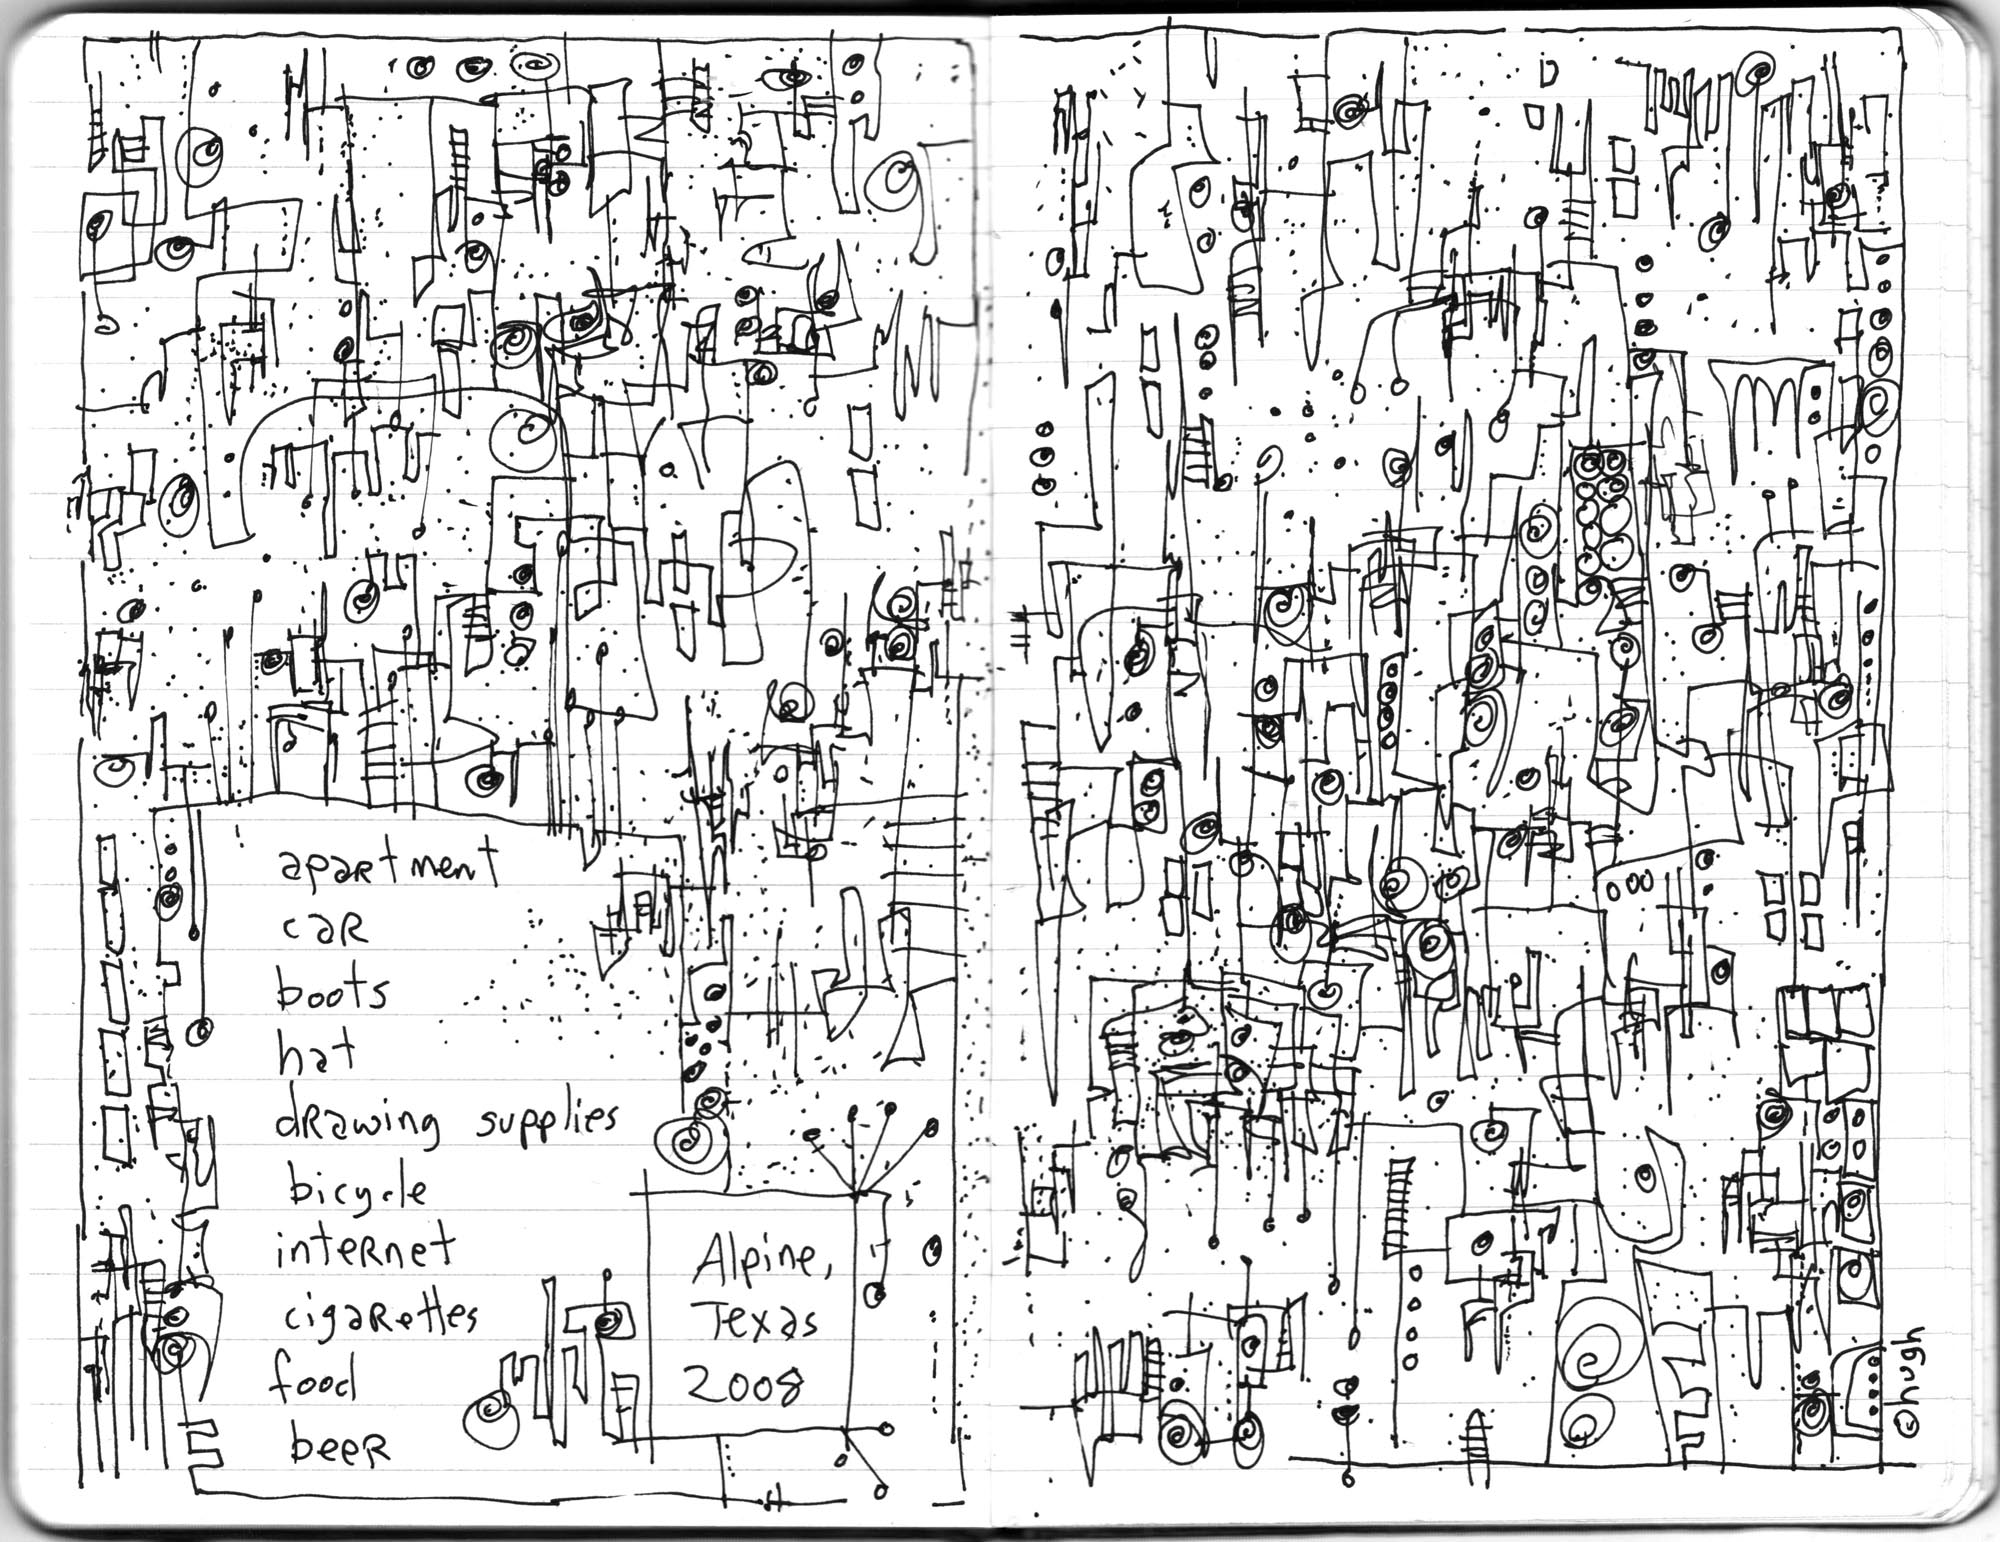 apartment
car
boots
hat
drawing supplies
bicycle
internet
cigarettes
food
beer
Alpine,
Texas
2008
©hugh